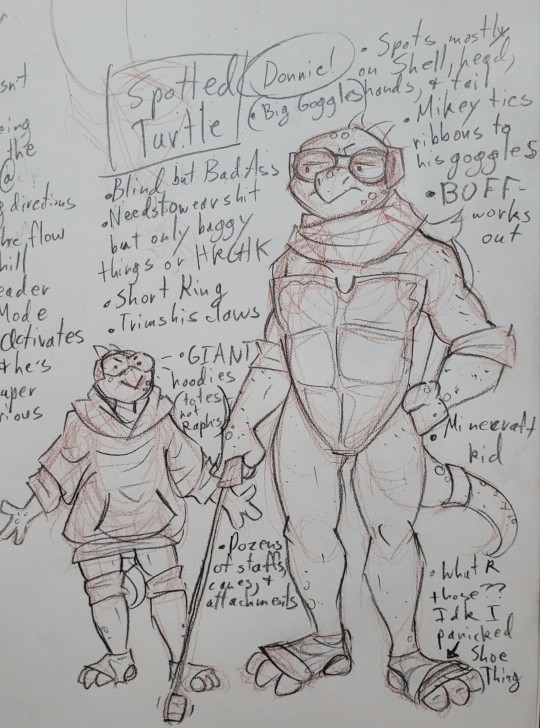 Spotted
Turtle
Donnie!
• Big Goggles
• Spots mostly
on Shell, head,
hands, & tail
• Mikey ties
ribbons to
his goggles
• BOFF-
works
out
• Blind but BadAss
• Needs to wear shit
but only baggy
things or
• Short King
• Trims his claws
• GIANT
hoodies
(totes
not
Raphs)
• Minecraft
kid
• Dozens
of staffs,
canes, &
attachments
• What R
those??
Idk I
panicked
Shoe
Thing
ing
the
@
g directions
flow
hill
eader
Mode
activates
the's
uper
rious